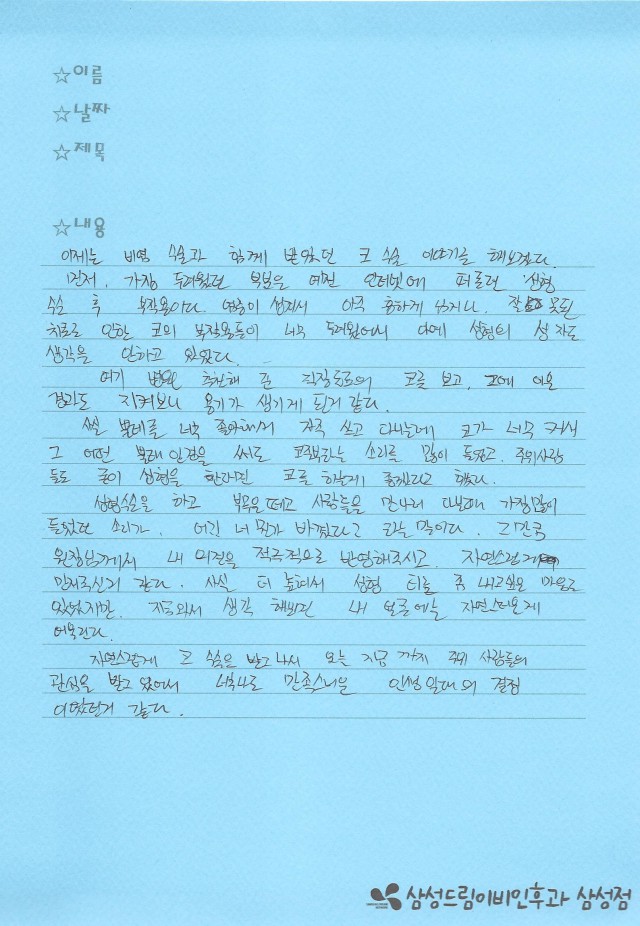 ☆이름
☆날짜
☆제목
☆내용
이제는 비염 수술과 함께 받았던 코 수술 이야기를 해보겠다.
먼저, 가장 두려웠던 부분은 여전 인터넷에 떠돌던 성형
수술 후 부작용이다. 염증이 생겨서 아주 흉하게 되거나, 잘못된
치료로 인한 코의 부작용들이 너무 두려웠어서 아예 성형의 성 자도
생각을 안하고 있었다.
여기 병원 추천해 준 직장동료의 코를 보고, 코에 이울
경과도 지켜보니 용기가 생기게 된거 같다.
사실 뿔테를 너무 좋아해서 자주 쓰고 다니는데 코가 너무 커서
그 어떤 뿔테 안경을 써도 코주부라는 소리를 많이 들었고, 주위사람
들도 종이 성형을 한다면 코를 하는게 좋겠다고 했다.
성형수술을 하고 부목을 떼고 사람들을 만나러 다닐때 가장많이
들었던 소리가, 어딘 네 뭔가 바꼈다고 라는 말이다.
원장님께서 내 의견을 적극적으로 반영해주시고, 자연스럽게
만져주신거 같다. 사실 더 높여서 성형 티를 좀 내고싶은 마음도
있었지만, 지금와서 생각 해보면 내 얼굴에는 자연스러운게
어울린다.
자연스럽게 코 수술을 받고 나서 오는 지금 까지 주위 사람들의
관심을 받고 있어서 너무나도 만족스러운 인생일대의 결정
이었던거 같다.
삼성드림이비인후과 삼성점